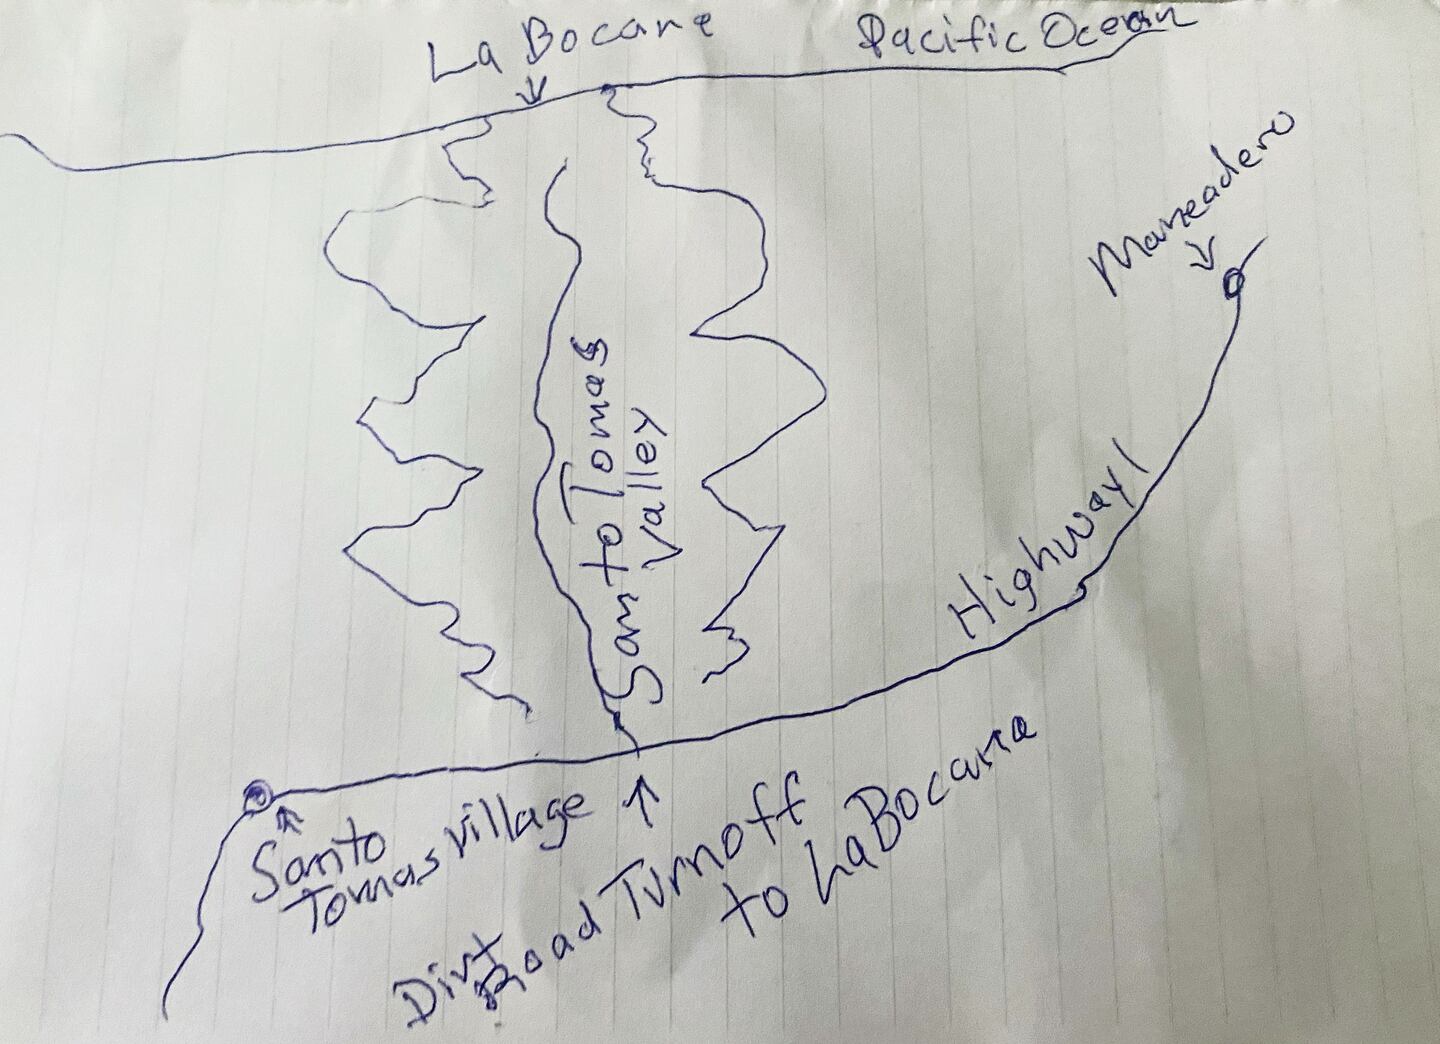 La Bocana
Pacific Ocean
Maneadero
Santo Tomas
Valley
Highway 1
Santo
Tomas Village
Dirt
Road Turnoff
to La Bocana